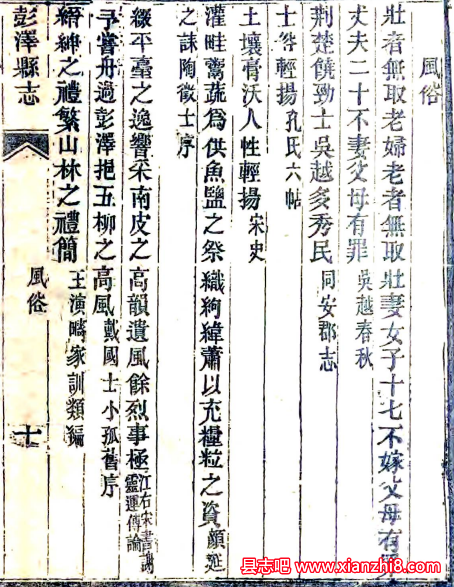 風俗
壯者無取老婦老者無取壯妻女子十七不嫁父母有罪
丈夫二十不妻父母有罪 吳越春秋
荆楚饒勁士吳越多秀民 同安郡志
士樂輕揚 孔氏六帖
土壤膏沃人性輕揚 宋史
灌畦鬻蔬爲供魚鹽之祭織絇緯蕭以充糧粒之資 顏延
之誄陶徵士序
綴平臺之逸響采南皮之高韻遺風餘烈事極江右 宋書謝靈運傳論
予嘗舟過彭澤挹五柳之高風 戴國士小孤舊序
縉紳之禮繁山林之禮簡 王演疇家訓類編
彭澤縣志 風俗 十
县志吧 www.xianzhi8.com